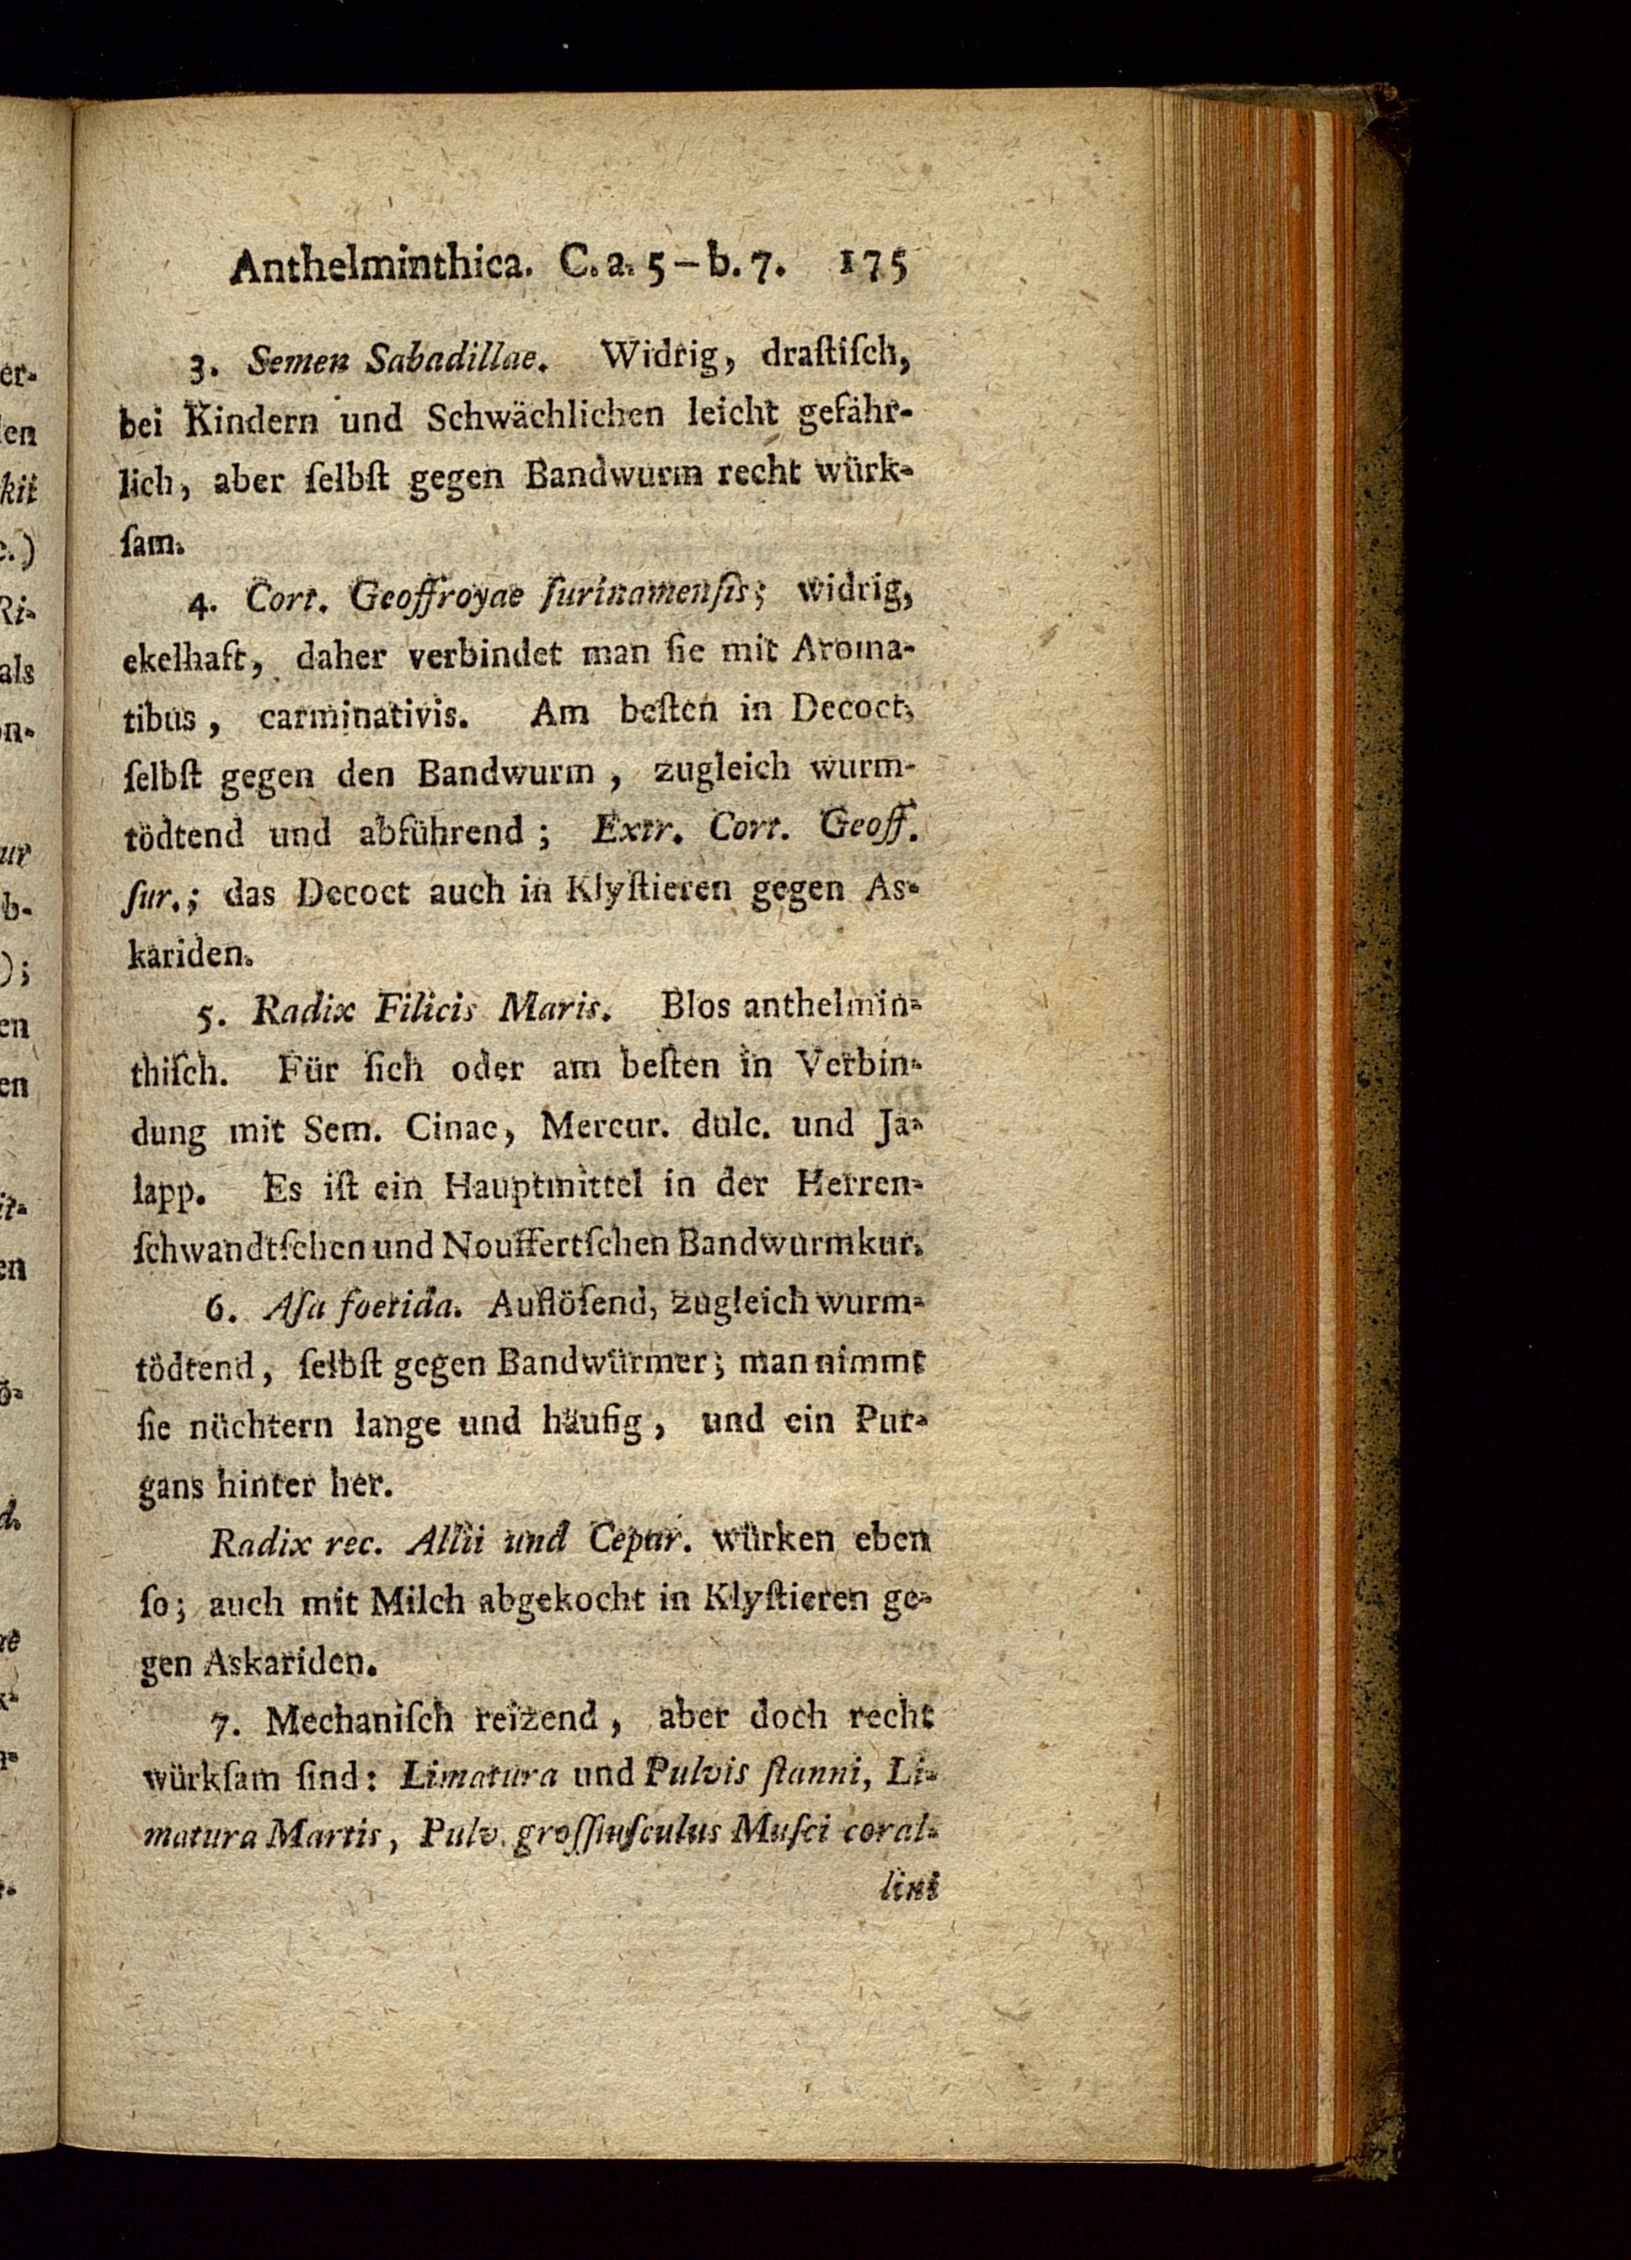 Anthelminthica. C. a. 5 – b. 7. 175
3. Semen Sabadillae. Widrig, draſtiſch,
bei Kindern und Schwächlichen leicht gefähr-
lich, aber ſelbſt gegen Bandwurm recht würk-
ſam.
4. Cort. Geoffroyae ſurinamenſis; widrig,
ekelhaft, daher verbindet man ſie mit Aroma-
tibus, carminativis. Am beſten in Decoct,
ſelbſt gegen den Bandwurm, zugleich wurm-
tödtend und abführend; Extr. Cort. Geoff.
ſur.; das Decoct auch in Klyſtieren gegen As-
kariden.
5. Radix Filicis Maris. Blos anthelmin-
thiſch. Für ſich oder am beſten in Verbin-
dung mit Sem. Cinae, Mercur. dulc. und Ja-
lapp. Es iſt ein Hauptmittel in der Herren-
ſchwandtſchen und Nouffertſchen Bandwurmkur.
6. Aſa foetida. Auflöſend, zugleich wurm-
tödtend, ſelbſt gegen Bandwürmer; man nimmt
ſie nüchtern lange und häufig, und ein Pur-
gans hinter her.
Radix rec. Allii und Cepar. würken eben
ſo; auch mit Milch abgekocht in Klyſtieren ge-
gen Askariden.
7. Mechaniſch reizend, aber doch recht
würkſam ſind: Limatura und Pulvis ſtanni, Li-
matura Martis, Pulv. groſſiuſculus Muſci coral-
lini
er-
en
kit
c.)
Ri-
als
on-
ur
b-
);
en
en
it-
en
ö-
d.
ae